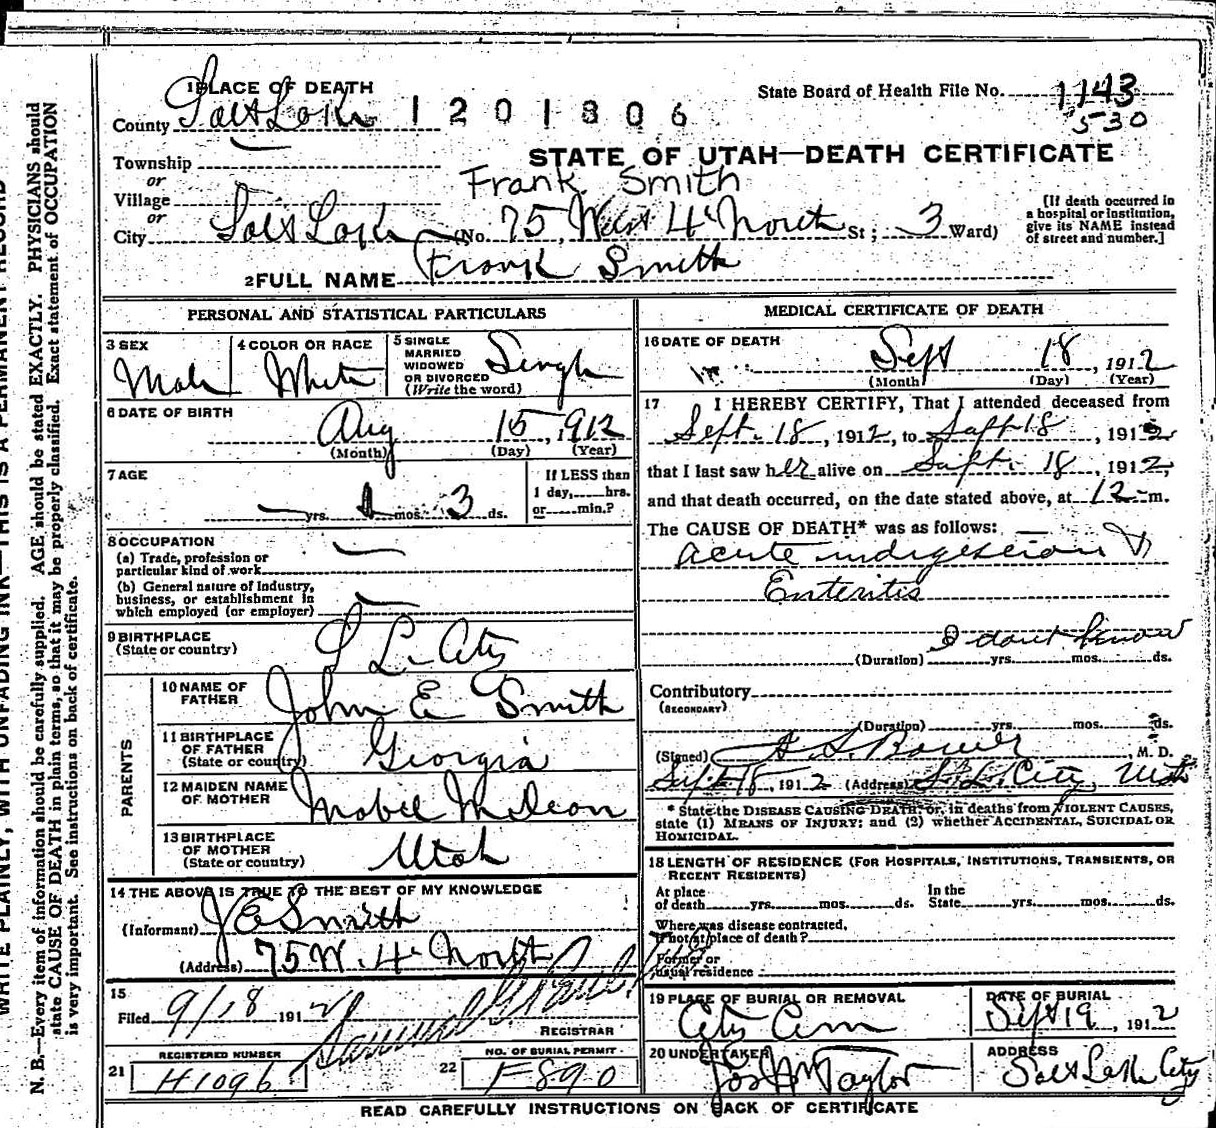 WRITE PLAINLY, WITH UNFADING INK—THIS IS A PERMANENT RECORD
N. B.—Every item of information should be carefully supplied. AGE should be stated EXACTLY. PHYSICIANS should
state CAUSE OF DEATH in plain terms, so that it may be properly classified. Exact statement of OCCUPATION
is very important. See instructions on back of certificate.
1 PLACE OF DEATH
State Board of Health File No. 1143
530
County Salt Lake 1201806
STATE OF UTAH—DEATH CERTIFICATE
Township
or
Frank Smith
Village
or
City Salt Lake (No. 75 West 4" North St; 3 Ward)
[If death occurred in
a hospital or institution,
give its NAME instead
of street and number.]
2 FULL NAME Frank Smith
PERSONAL AND STATISTICAL PARTICULARS
3 SEX
Male
4 COLOR OR RACE
White
5 SINGLE
MARRIED
WIDOWED
OR DIVORCED
(Write the word)
Single
6 DATE OF BIRTH
Aug 15, 1912
(Month) (Day) (Year)
7 AGE
yrs. 1 mos. 3 ds.
If LESS than
1 day, hrs.
or min.?
8 OCCUPATION
(a) Trade, profession or
particular kind of work
(b) General nature of industry,
business, or establishment in
which employed (or employer)
9 BIRTHPLACE
(State or country)
S L City
PARENTS
10 NAME OF
FATHER
John E Smith
11 BIRTHPLACE
OF FATHER
(State or country)
Georgia
12 MAIDEN NAME
OF MOTHER
Mabel
13 BIRTHPLACE
OF MOTHER
(State or country)
Utah
14 THE ABOVE IS TRUE TO THE BEST OF MY KNOWLEDGE
(Informant) J E Smith
(Address) 75 W. 4" North
15
Filed 9/18 191 2
Samuel G. Paul
REGISTRAR
REGISTERED NUMBER
21 H1096
NO. OF BURIAL PERMIT
22 F890
MEDICAL CERTIFICATE OF DEATH
16 DATE OF DEATH
Sept 18, 1912
(Month) (Day) (Year)
17 I HEREBY CERTIFY, That I attended deceased from
Sept. 18, 1912, to Sept 18, 1912,
that I last saw her alive on Sept. 18, 1912,
and that death occurred, on the date stated above, at 12 m.
The CAUSE OF DEATH* was as follows:
acute indigestion &
Enteritis
I dont know
(Duration) yrs. mos. ds.
Contributory
(SECONDARY)
(Duration) yrs. mos. ds.
(Signed) A S. Bower, M. D.
Sept 18, 1912 (Address) S. L. City, Utah
* State the DISEASE CAUSING DEATH, or, in deaths from VIOLENT CAUSES,
state (1) MEANS OF INJURY; and (2) whether ACCIDENTAL, SUICIDAL OR
HOMICIDAL.
18 LENGTH OF RESIDENCE (FOR HOSPITALS, INSTITUTIONS, TRANSIENTS, OR
RECENT RESIDENTS)
At place
of death yrs. mos. ds.
In the
State yrs. mos. ds.
Where was disease contracted,
if not at place of death?
Former or
usual residence
19 PLACE OF BURIAL OR REMOVAL
City Cem
DATE OF BURIAL
Sept 19, 1912
20 UNDERTAKER
Jos Wm Taylor
ADDRESS
Salt Lake City
READ CAREFULLY INSTRUCTIONS ON BACK OF CERTIFICATE